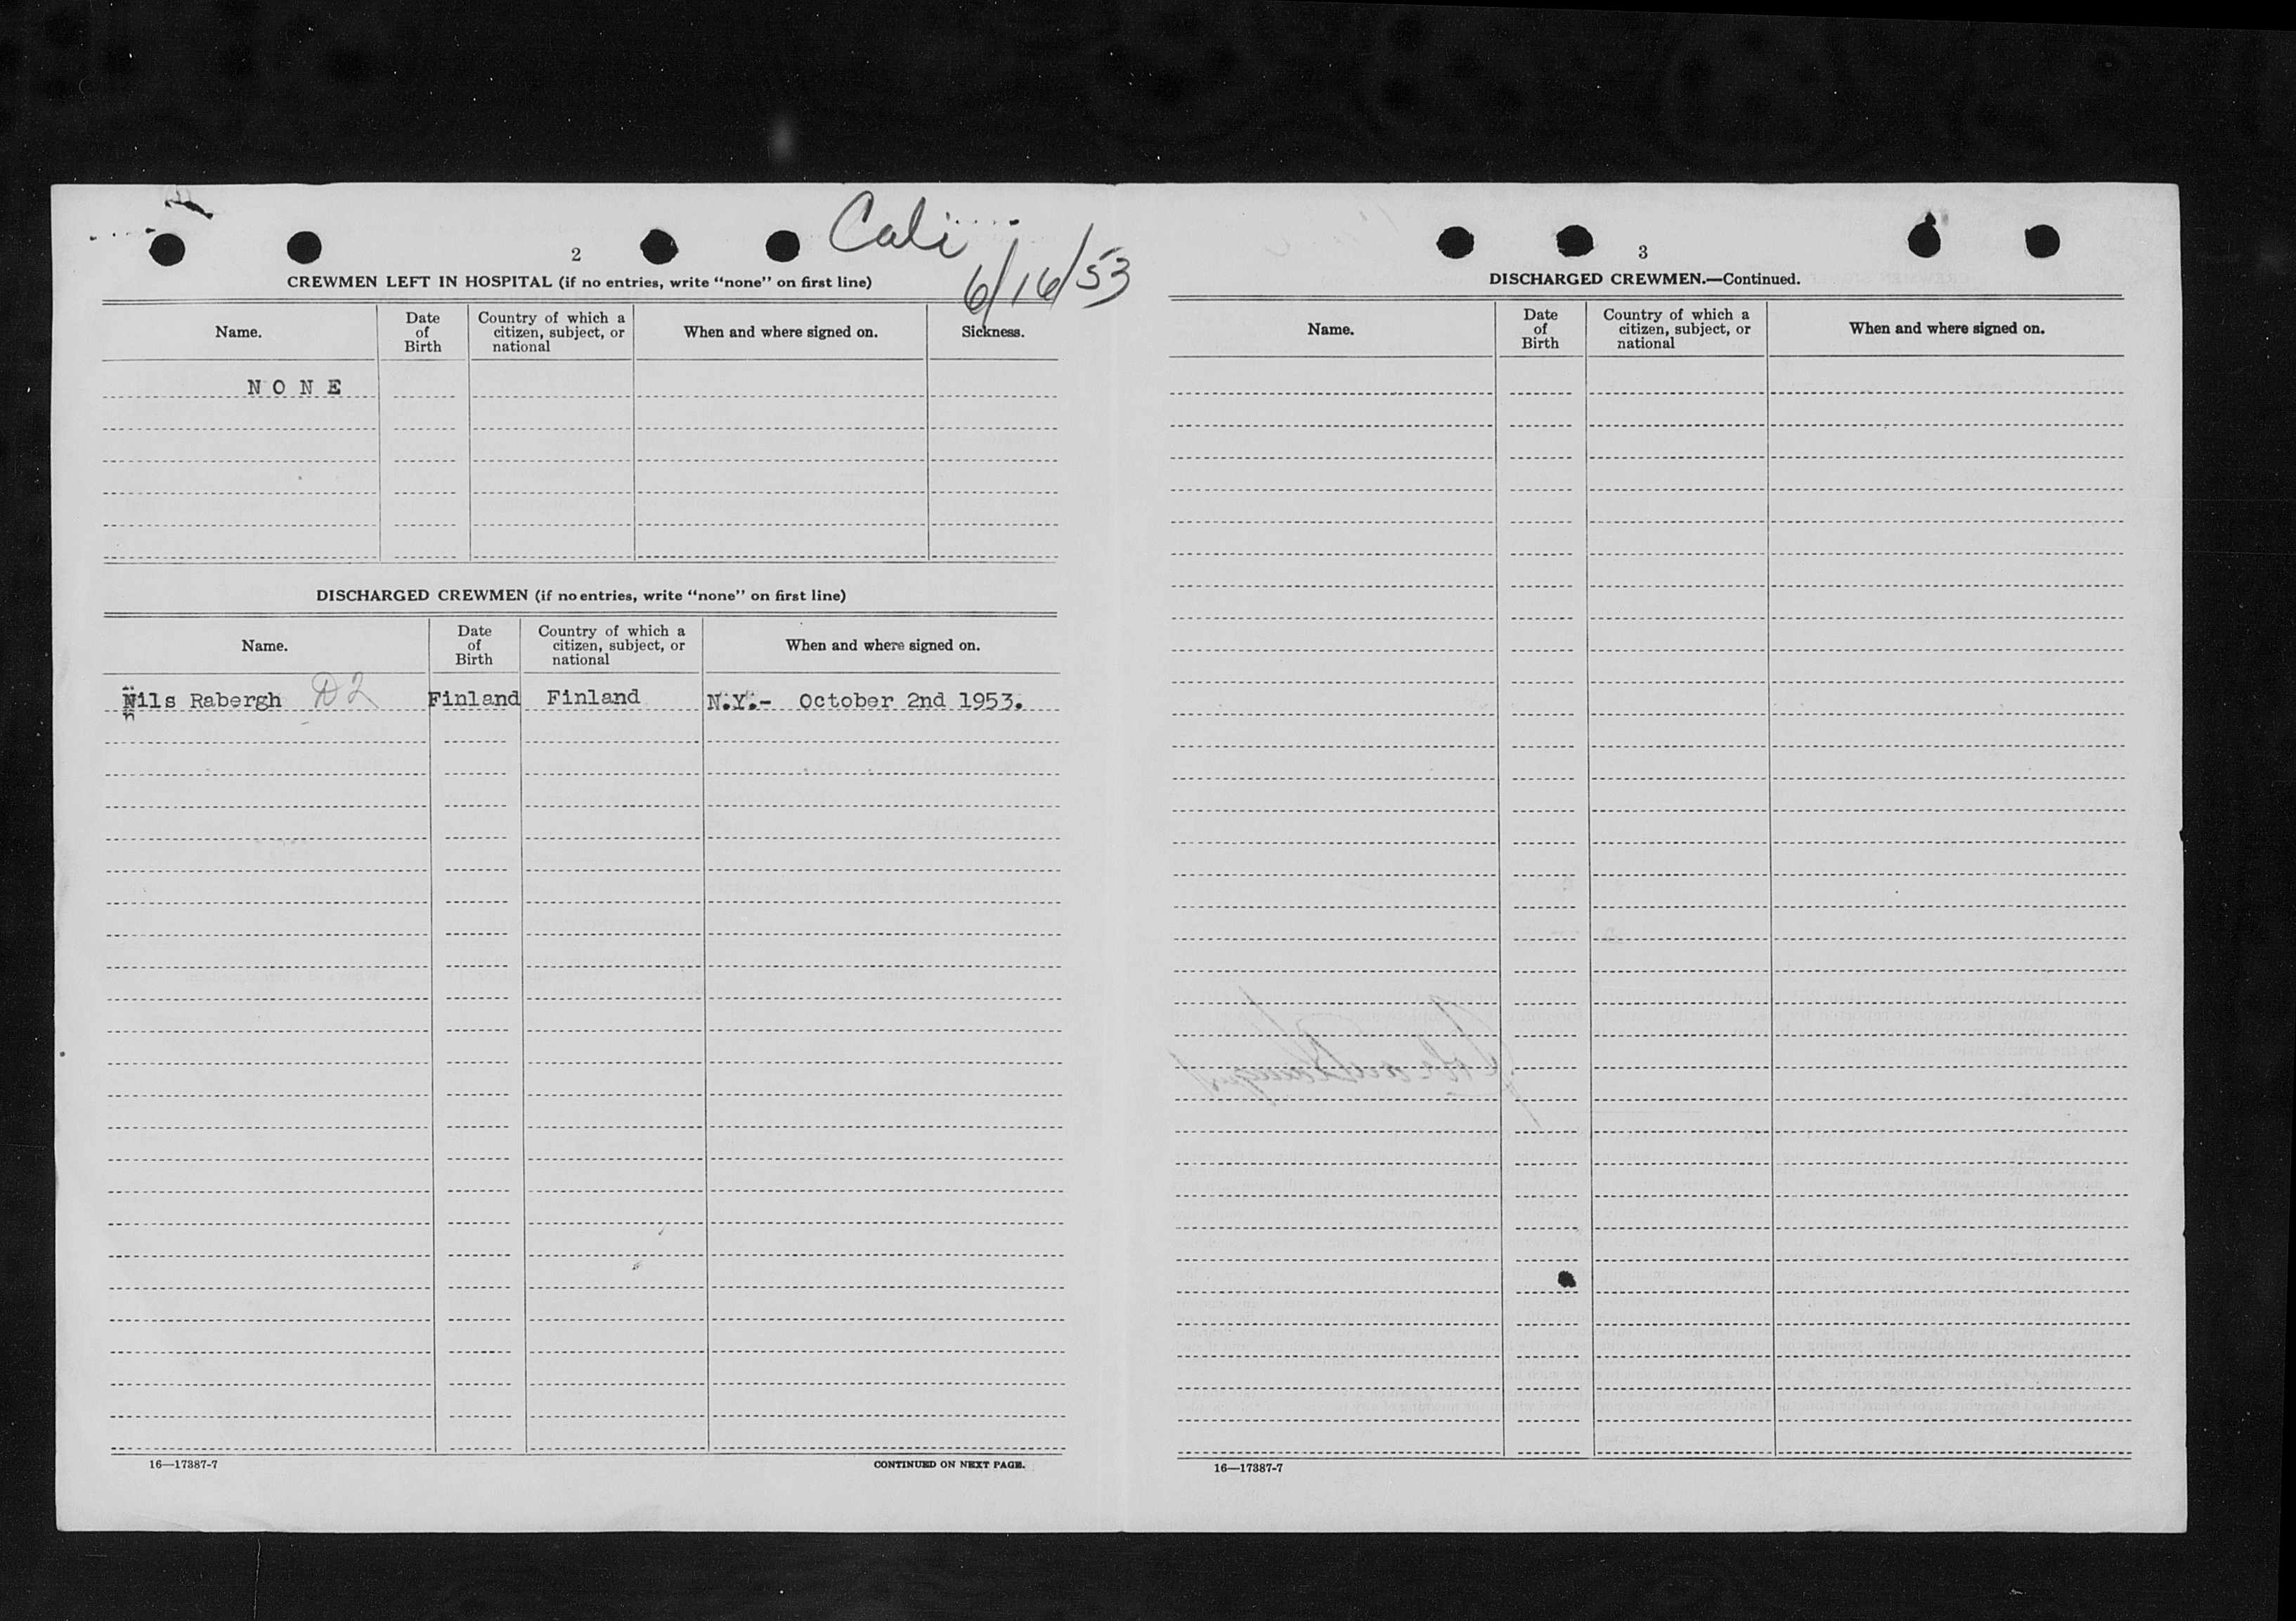 Cali
6/16/53
2
CREWMEN LEFT IN HOSPITAL (if no entries, write "none" on first line)
Name.
Date of Birth
Country of which a citizen, subject, or national
When and where signed on.
Sickness.
N O N E
DISCHARGED CREWMEN (if no entries, write "none" on first line)
Name.
Date of Birth
Country of which a citizen, subject, or national
When and where signed on.
Nils Rabergh D2 Finland Finland N.Y.- October 2nd 1953.
16—17387-7
CONTINUED ON NEXT PAGE.
3
DISCHARGED CREWMEN.—Continued.
Name.
Date of Birth
Country of which a citizen, subject, or national
When and where signed on.
16—17387-7